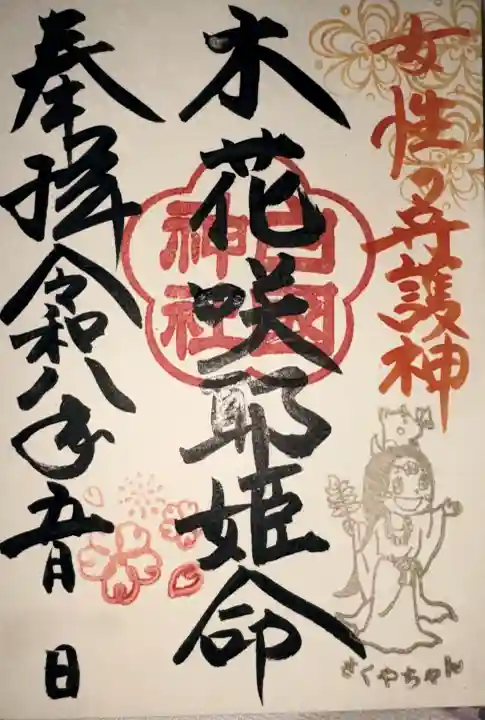 女性の守護神
木花咲耶姫命
奉拝 令和八年五月 日
神社
さくやちゃん